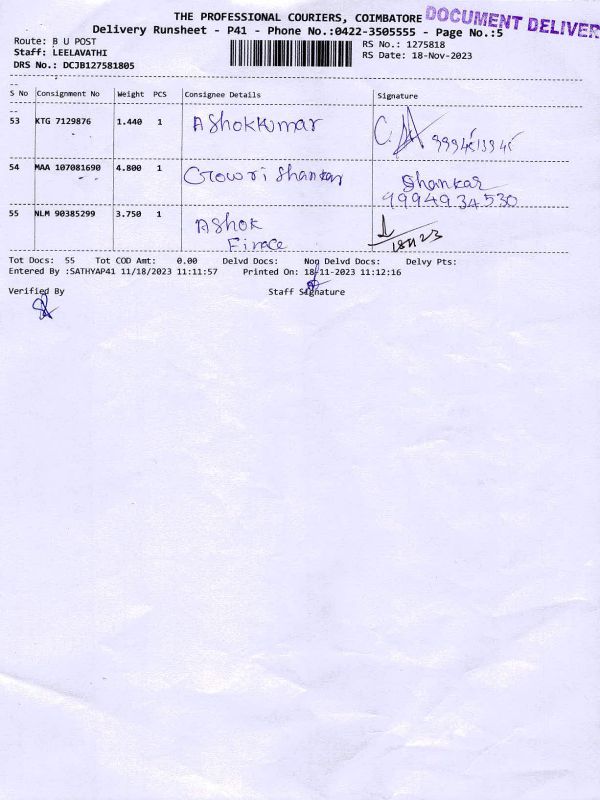 THE PROFESSIONAL COURIERS, COIMBATORE
DOCUMENT DELIVER
Delivery Runsheet - P41 - Phone No.:0422-3505555 - Page No.:5
Route: B U POST
RS No.: 1275818
Staff: LEELAVATHI
RS Date: 18-Nov-2023
DRS No.: DCJB127581805
S No Consignment No Weight PCS Consignee Details Signature
53 KTG 7129876 1.440 1 Ashokkumar
54 MAA 107081690 4.800 1 Gowri Shankar Shankar
9994934530
55 NLM 90385299 3.750 1 Ashok
18 11 23
Tot Docs: 55 Tot COD Amt: 0.00 Delvd Docs: Non Delvd Docs: Delvy Pts:
Entered By :SATHYAP41 11/18/2023 11:11:57 Printed On: 18-11-2023 11:12:16
Verified By Staff Signature